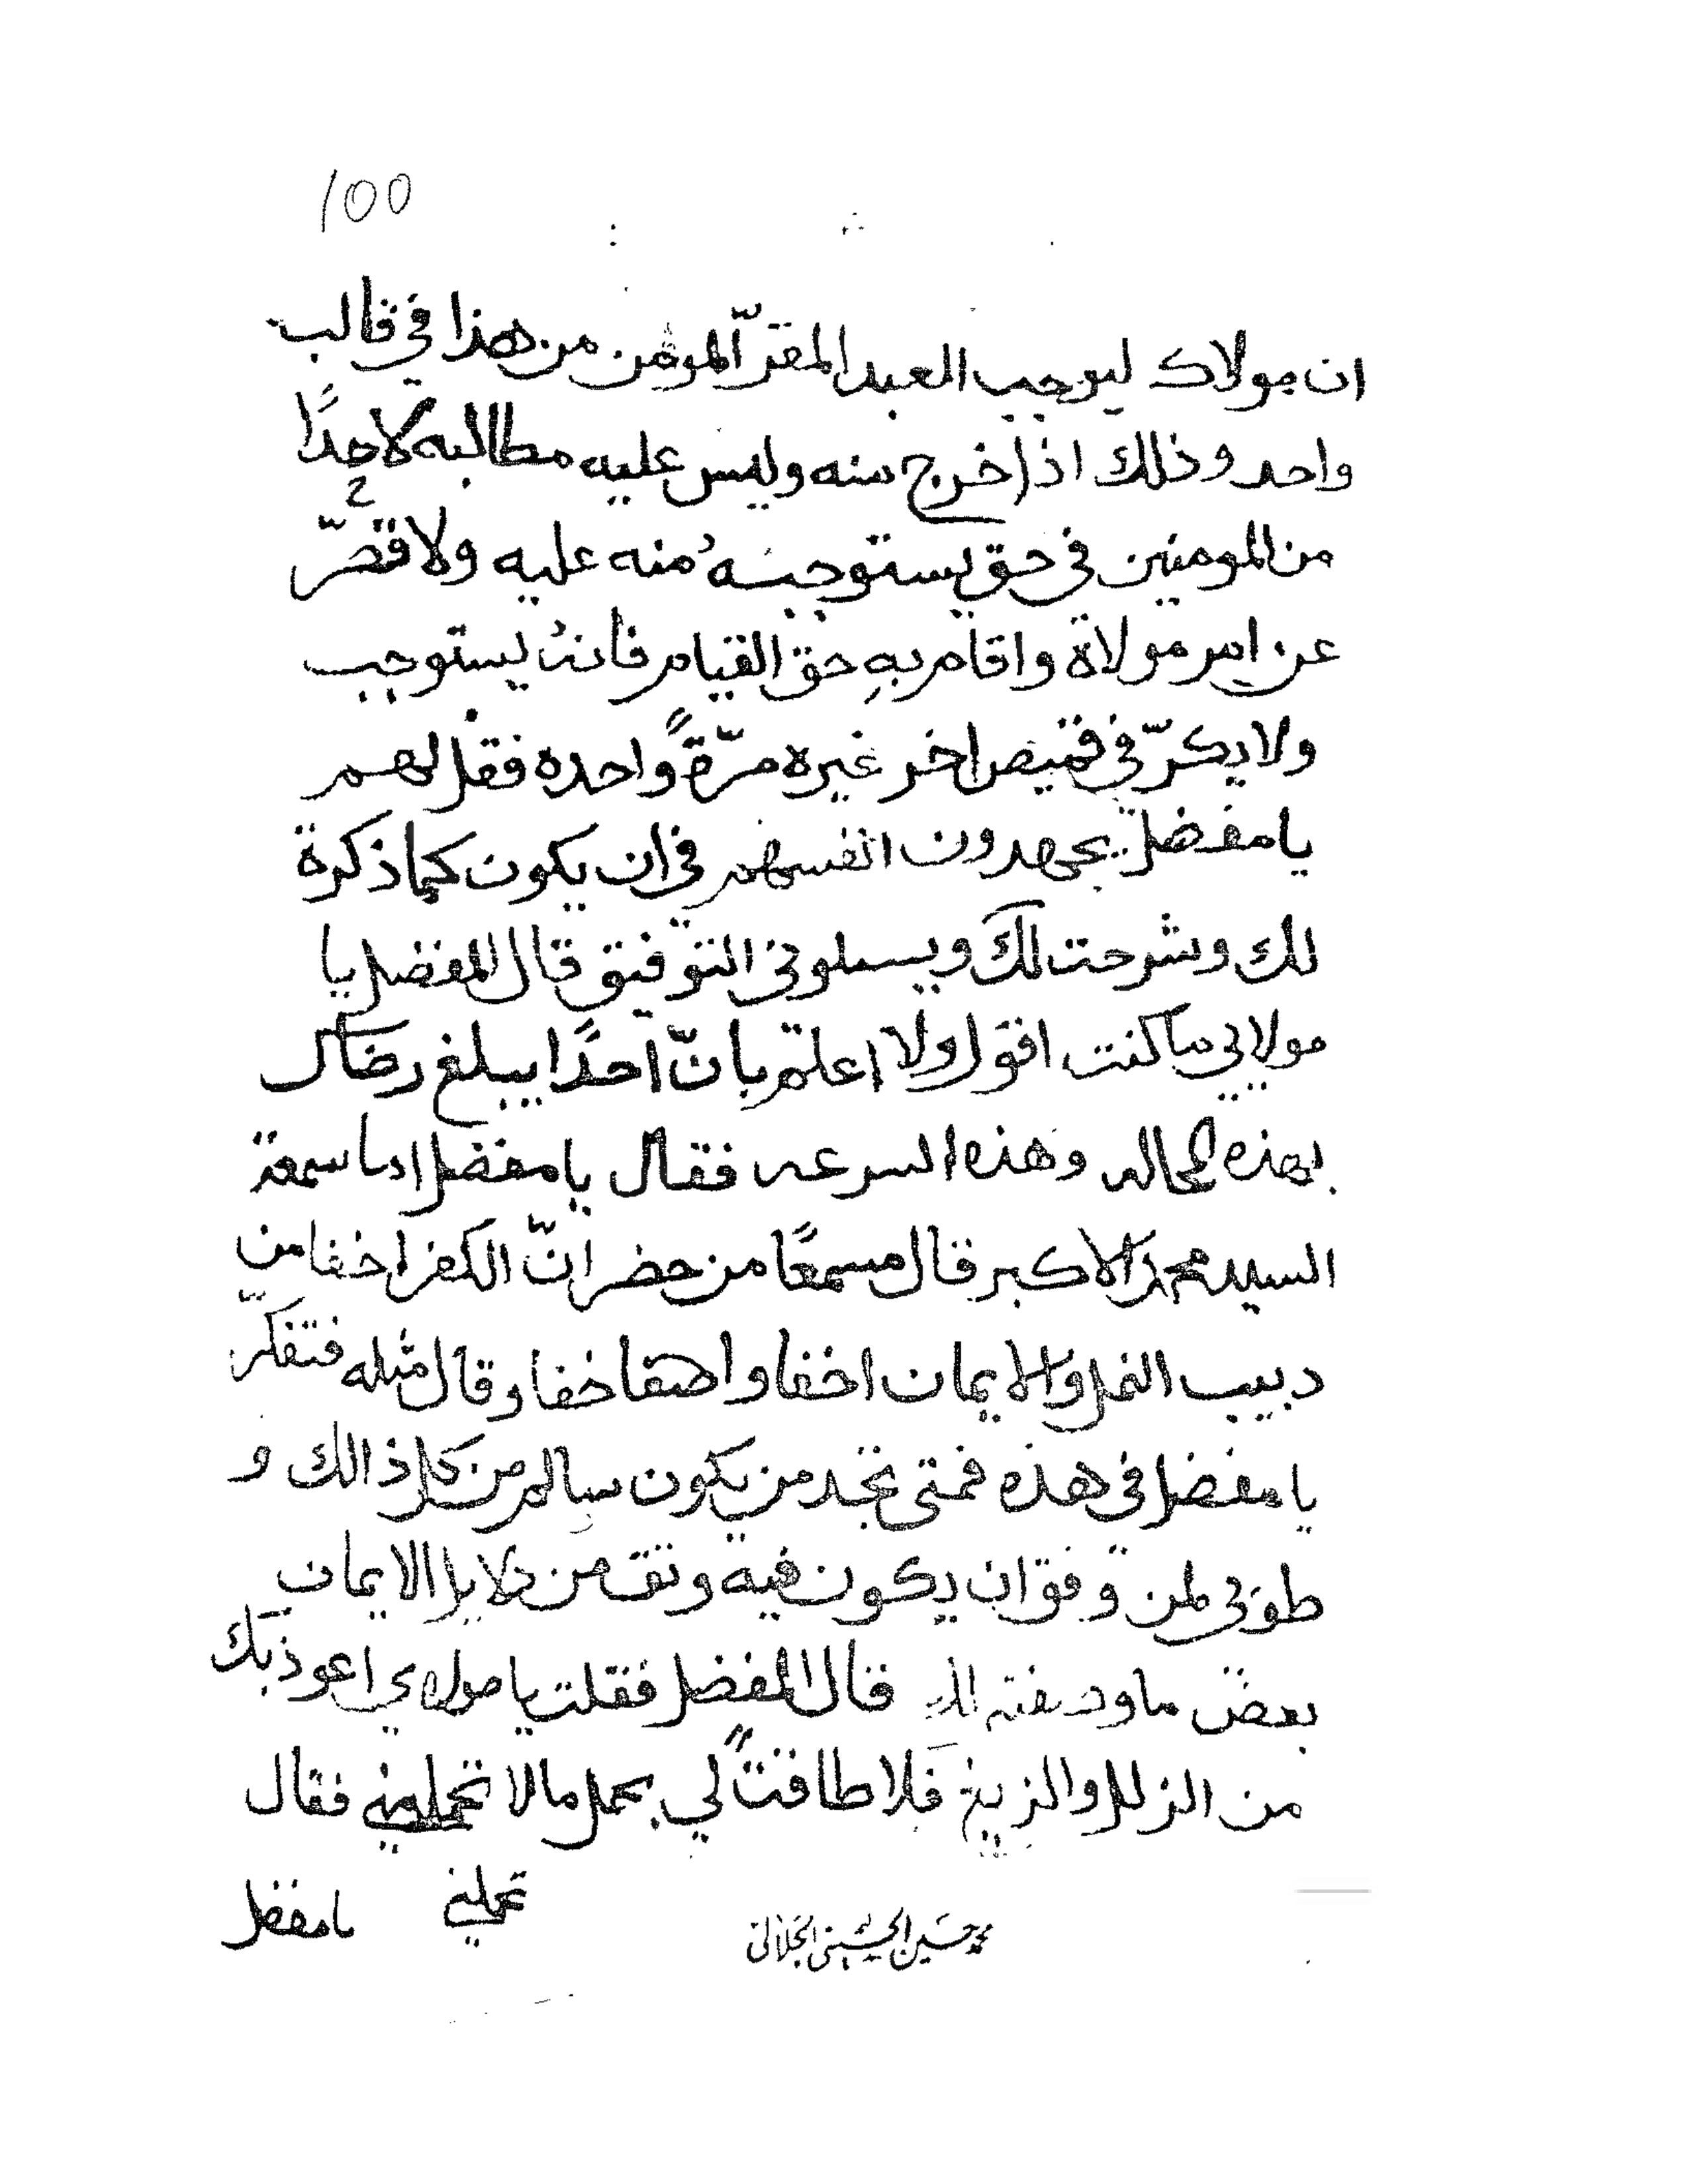 100
ان مولاك ليوجب العبد المقرّ المومن من هذا في قالب
واحد وذلك اذا خرج منه وليس عليه مطالبه لاحدًا
من المومنين في حق يستوجبهُ منه عليه ولا قصّر
عن امر مولاة واقام بهِ حق القيام فانهُ يستوجب
ولا يكرّ في قميص اخر غيره مرّةً واحده فقل لهم
يا مفضل يجهدون انفسهم في ان يكون كما ذكرة
لك وشرحت لك ويسلوني التوفيق قال المفضل يا
مولاي ما كنت اقول ولا اعلم بانّ احدًا يبلغ رضاك
بهذه الحاله وهذه السرعه فقال يا مفضل اما سمعة
السيد محمد الاكبر قال مسمعًا من حضر انّ الكفر اخفا من
دبيب النمل والايمان اخفا واخفا وقال مثله فتفكّر
يا مفضل في هذه فمتى تجد من يكون سالم من كل ذالك و
طوبى لمن وفق ان يكون فيه من دلايل الايمان
بعض ما وصفته لك قال المفضل فقلت يا مولاي اعوذ بك
من الزلل والزيغ فلا طاقتً لي بحمل مالا فقال
تحملني
يا مفضل
محمد حسين الحسيني الجلالي